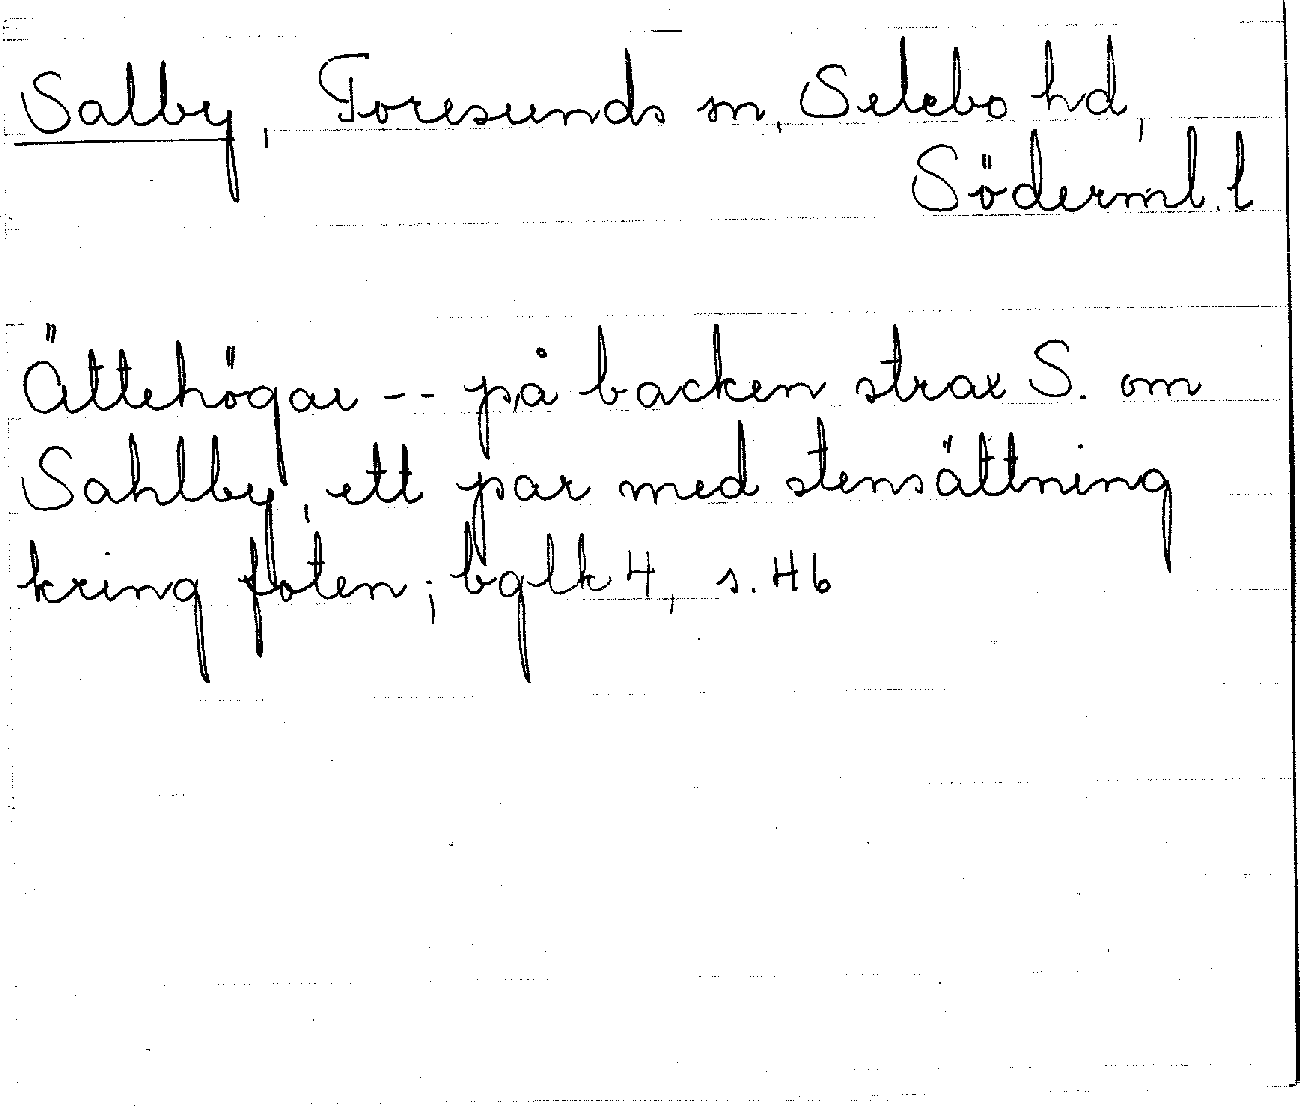 Salby, Toresunds sn, Selebo hd,
Söderml. l
Ättehögar -- på backen strax S. om
Sahlby, ett par med stensättning
kring foten; bglk 4, s. 46